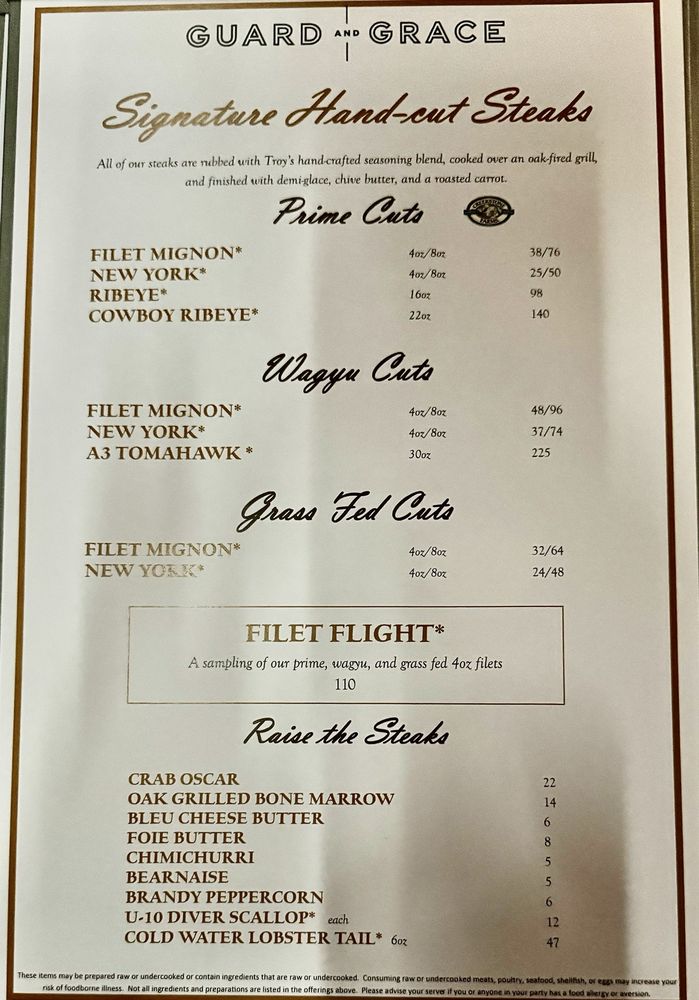 GUARD AND GRACE
Signature Hand-cut Steaks
All of our steaks are rubbed with Troy's hand-crafted seasoning blend, cooked over an oak-fired grill,
and finished with demi-glace, chive butter, and a roasted carrot.
Prime Cuts
FILET MIGNON* 4oz/8oz 38/76
NEW YORK* 4oz/8oz 25/50
RIBEYE* 16oz 98
COWBOY RIBEYE* 22oz 140
Wagyu Cuts
FILET MIGNON* 4oz/8oz 48/96
NEW YORK* 4oz/8oz 37/74
A3 TOMAHAWK * 30oz 225
Grass Fed Cuts
FILET MIGNON* 4oz/8oz 32/64
NEW YORK* 4oz/8oz 24/48
FILET FLIGHT*
A sampling of our prime, wagyu, and grass fed 4oz filets
110
Raise the Steaks
CRAB OSCAR 22
OAK GRILLED BONE MARROW 14
BLEU CHEESE BUTTER 6
FOIE BUTTER 8
CHIMICHURRI 5
BEARNAISE 5
BRANDY PEPPERCORN 6
U-10 DIVER SCALLOP* each 12
COLD WATER LOBSTER TAIL* 6oz 47
These items may be prepared raw or undercooked or contain ingredients that are raw or undercooked. Consuming raw or undercooked meats, poultry, seafood, shellfish, or eggs may increase your
risk of foodborne illness. Not all ingredients and preparations are listed in the offerings above. Please advise your server if you or anyone in your party has a food allergy or aversion.